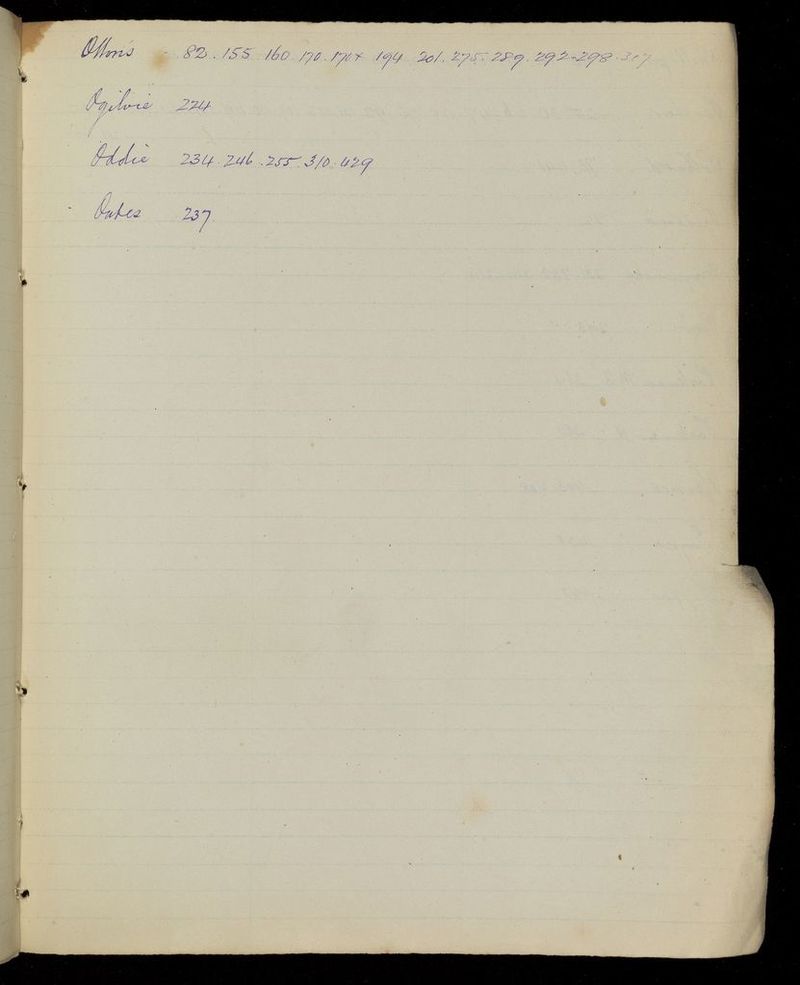 82 . 155 160 170 170x 194 201 . 275 . 289 . 292-298 . 317
Ogilvie 224
Oddie 234 . 246 . 255 . 310 . 429
Oates 237